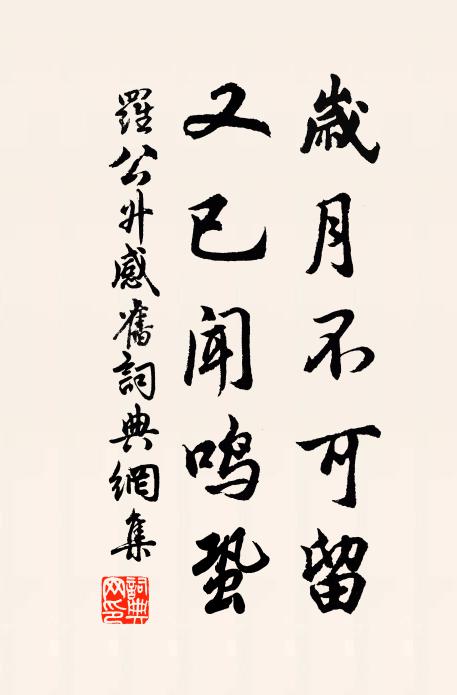 歲月不可留
又已聞鳴蛩
羅公升感舊詞典網集
詞典網印